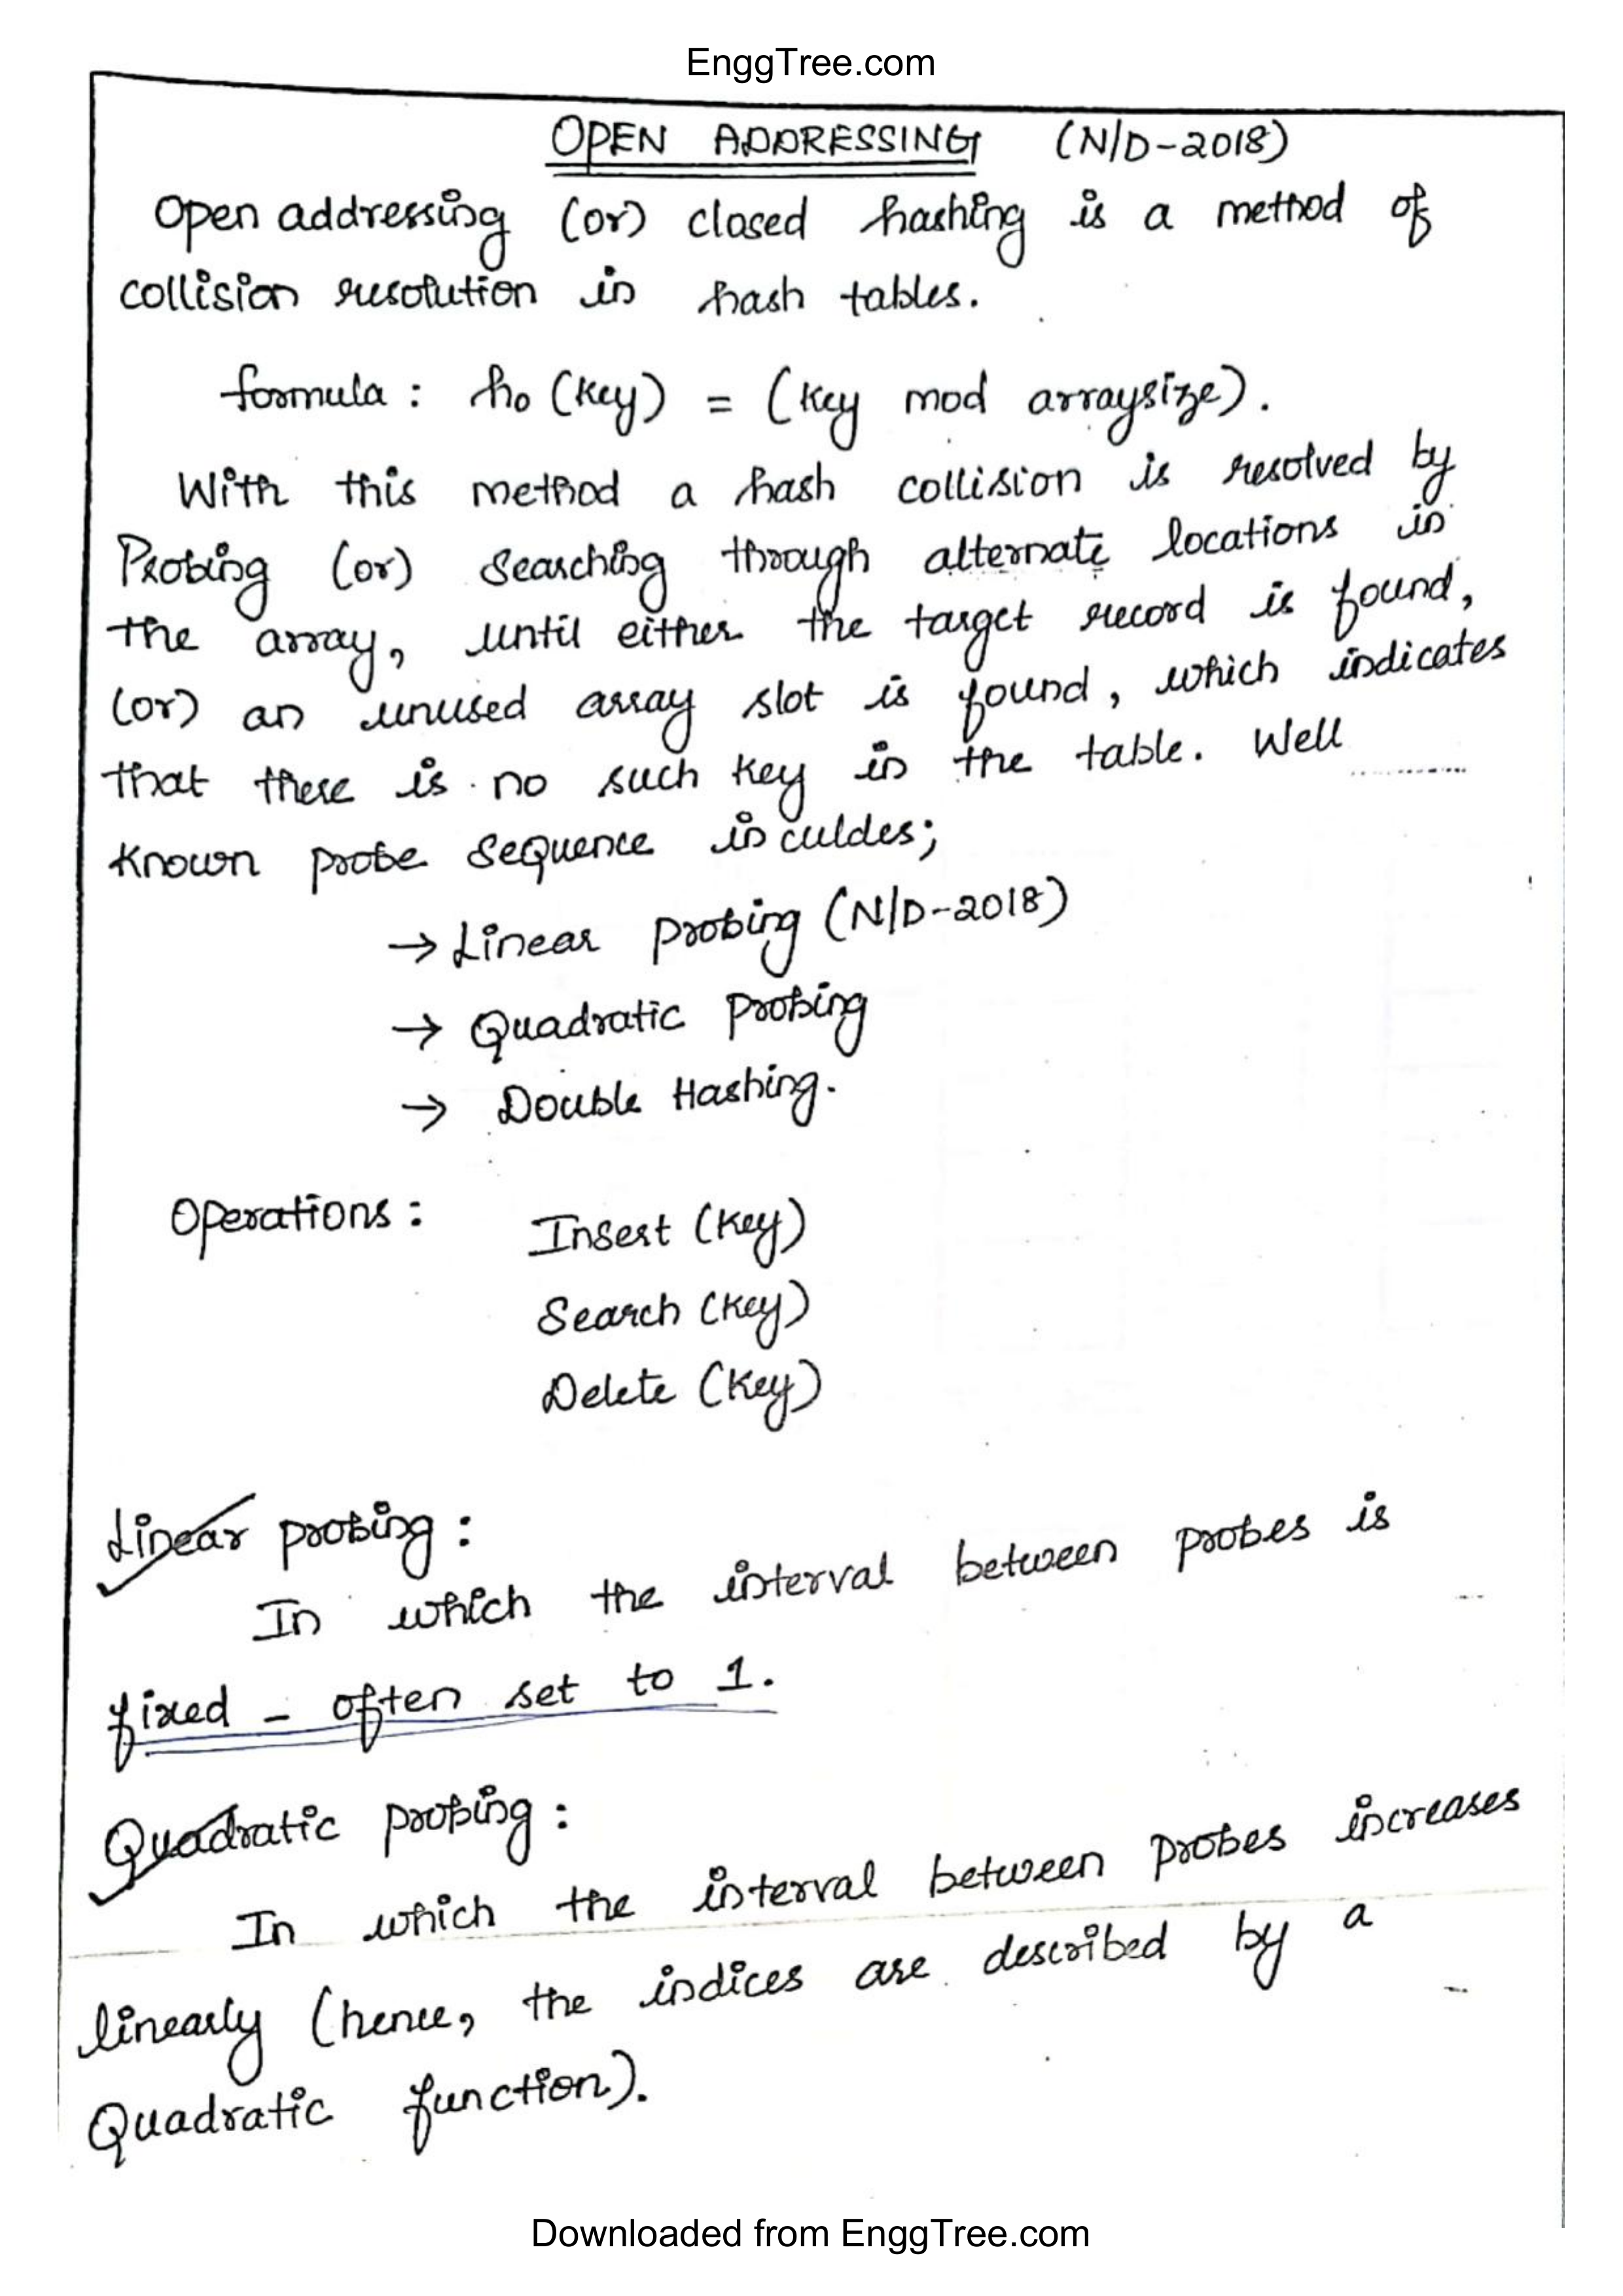 EnggTree.com
OPEN ADDRESSING (N/D-2018)
Open addressing (or) closed hashing is a method of
collision resolution in hash tables.
formula : ho (key) = (key mod arraysize).
With this method a hash collision is resolved by
Probing (or) searching through alternate locations in
the array, until either the target record is found,
(or) an unused array slot is found, which indicates
that there is no such key in the table. Well
known probe sequence inculdes;
→ Linear probing (N/D-2018)
→ Quadratic probing
→ Double Hashing.
Operations : Insert (key)
Search (key)
Delete (key)
Linear probing :
In which the interval between probes is
fixed - often set to 1.
Quadratic probing :
In which the interval between probes increases
linearly (hence, the indices are described by a
Quadratic function).
Downloaded from EnggTree.com